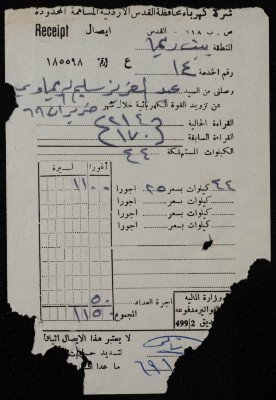 شركة كهرباء محافظة القدس الاردنية المساهمة المحدودة
ص . ب ١١٨ - القدس ايصال Receipt
المنطقة بيت ريما
رقم الخدمة ١٤ ع ١٨٥٠٩٨
وصلني من السيد عبد العزيز سليم الريماوي
عن تزويد القوة الكهربائية خلال شهر حزيران ٦٩
القراءة الحالية ٢١٤
القراءة السابقة ١٧٠
الكيلوات المستهلكة ٤٤
اغورا الليرة
٤٤ كيلوات بسعر ٢٥ اجورا ١١٠٠
كيلوات بسعر اجورا
كيلوات بسعر اجورا
كيلوات بسعر اجورا
اجرة العداد ٥٠
المجموع ١١٥٠
وزارة المالية
499/2
لا يعتبر هذا الايصال اثباتا
لتسديد
ما عدا